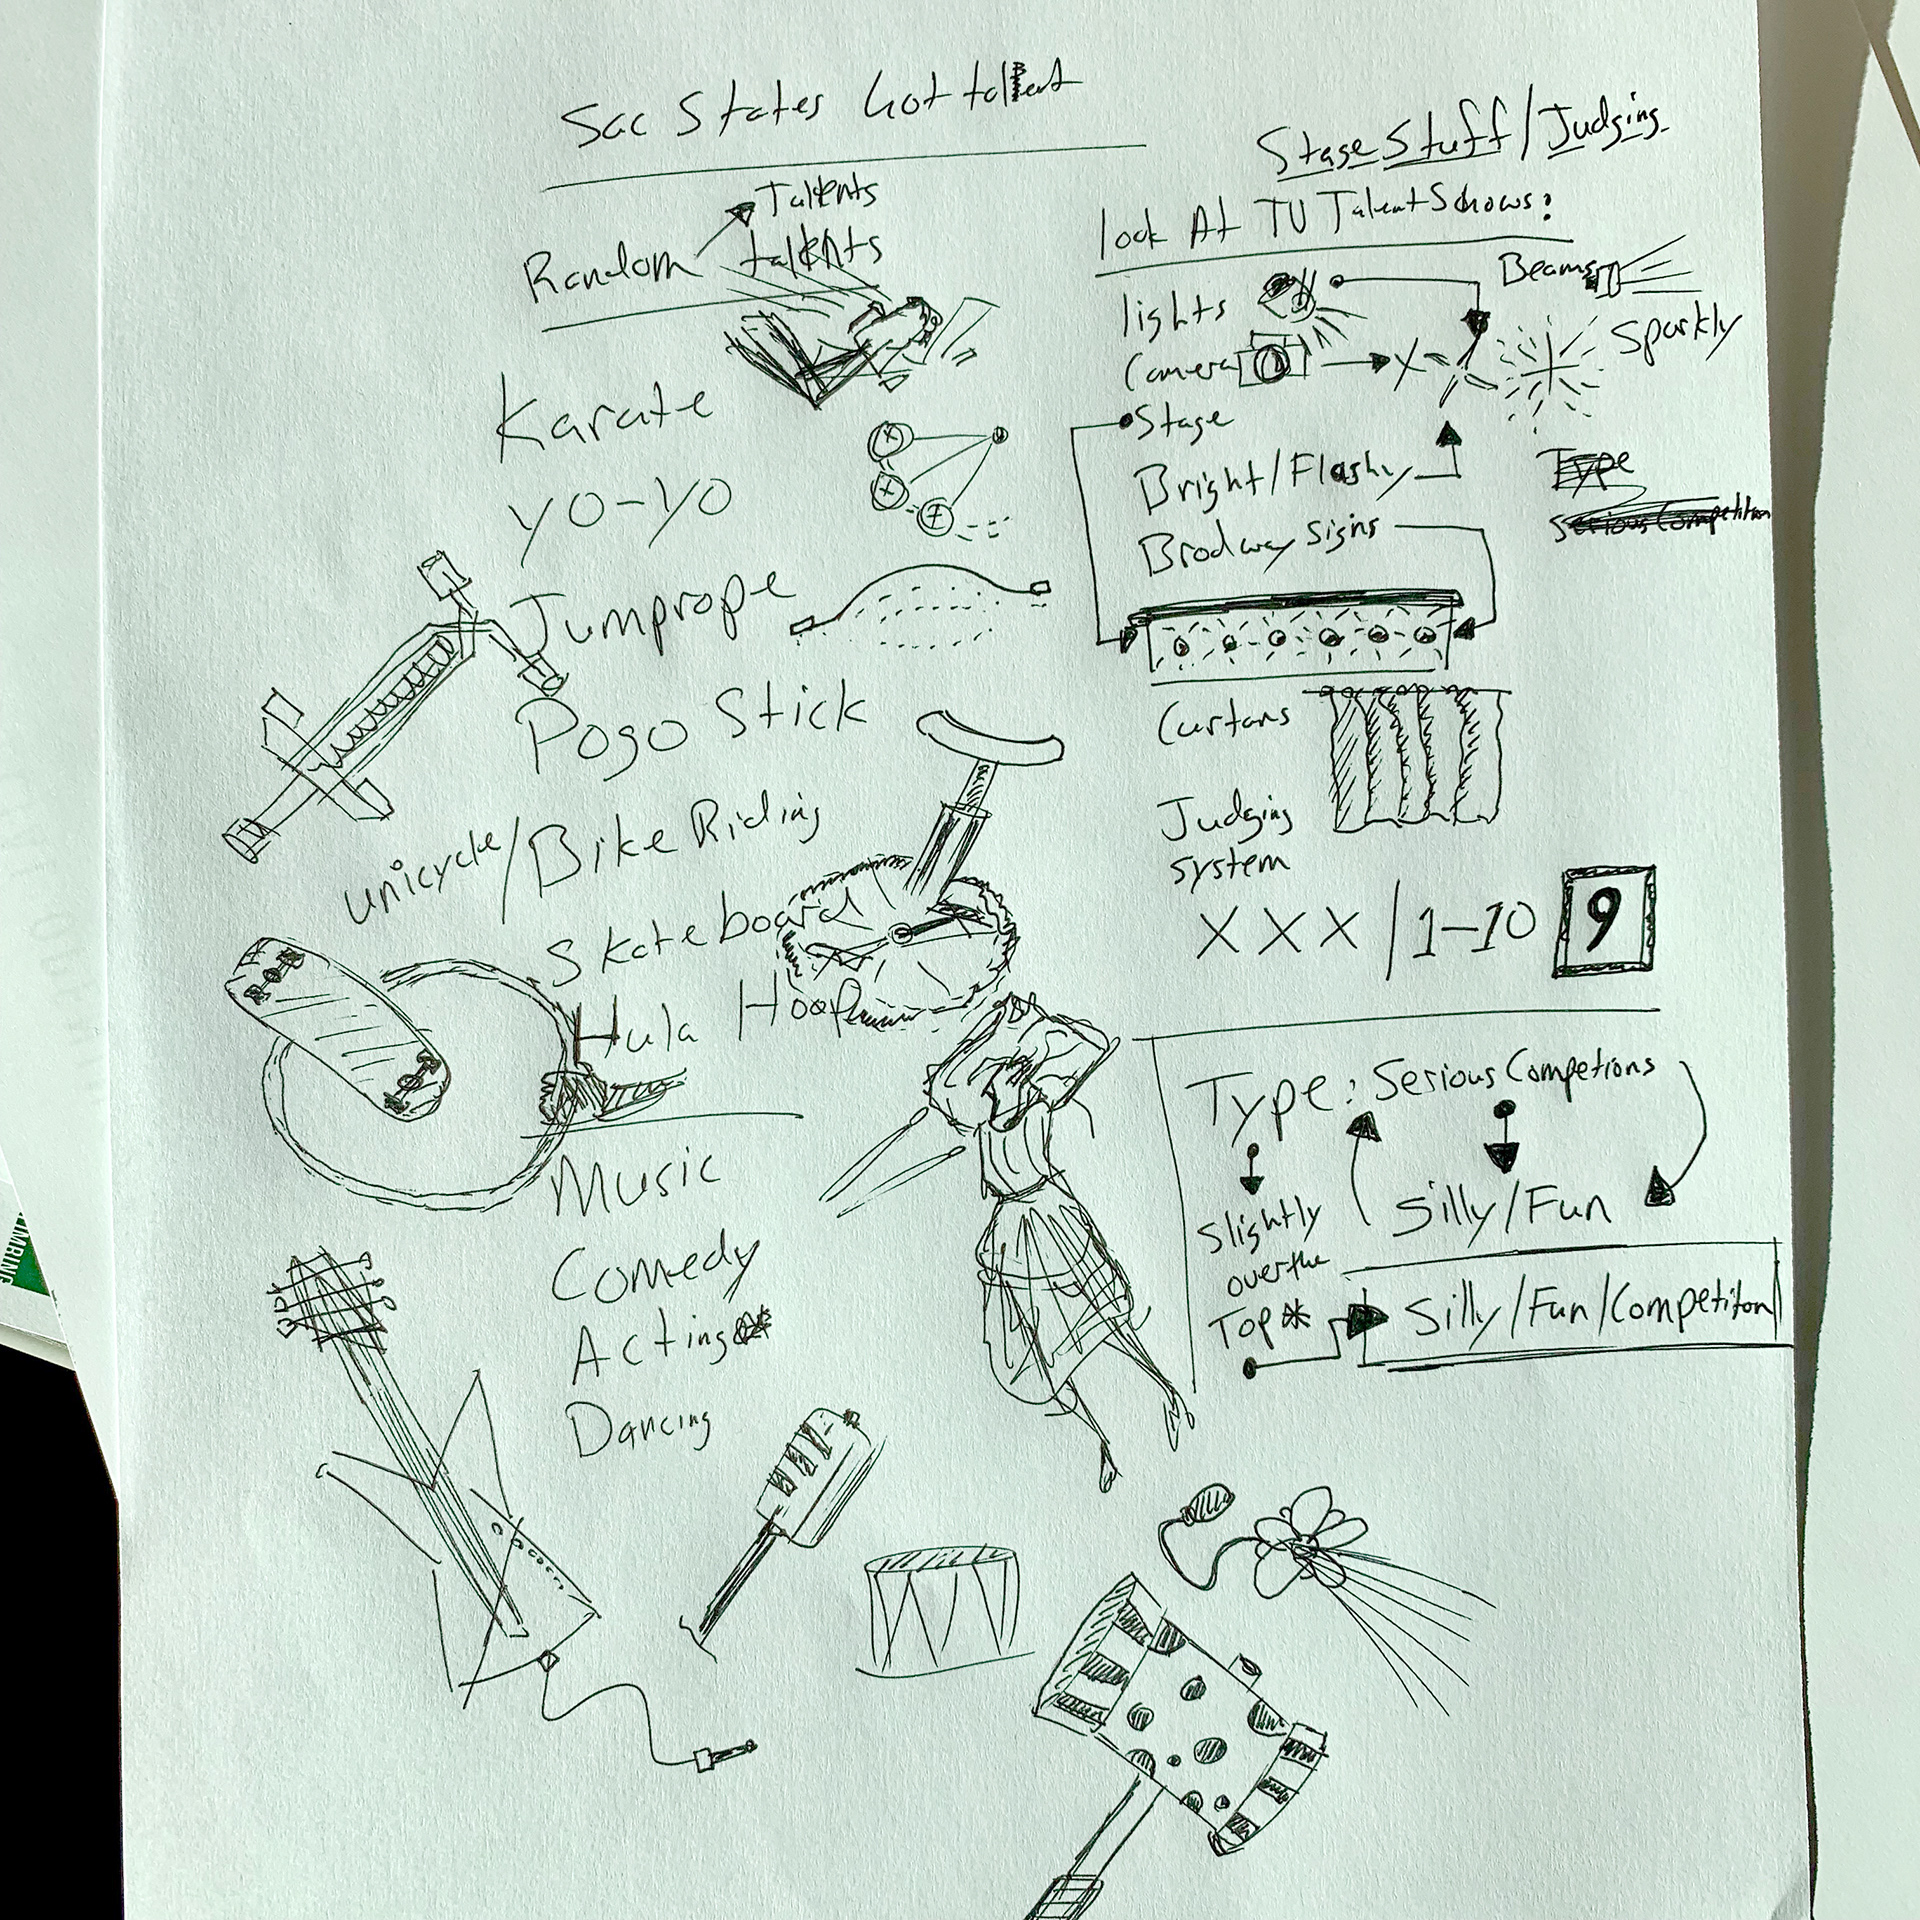 Sac States Got talent
Random
Talents
talents
Karate
YO-YO
Jumprope
Pogo Stick
unicycle/Bike Riding
Skateboard
Hula Hoop
Music
Comedy
Acting*
Dancing
Stage Stuff/Judging
look At TV Talent Schows:
lights
Beams
Sparkly
Camera
Stage
Bright/Flashy
Type
Serious Competiton
Brodway signs
Curtans
Judging
system
X X X / 1-10 9
Type: Serious Competions
Slightly
over the
Top*
Silly/Fun
Silly/Fun/Competiton